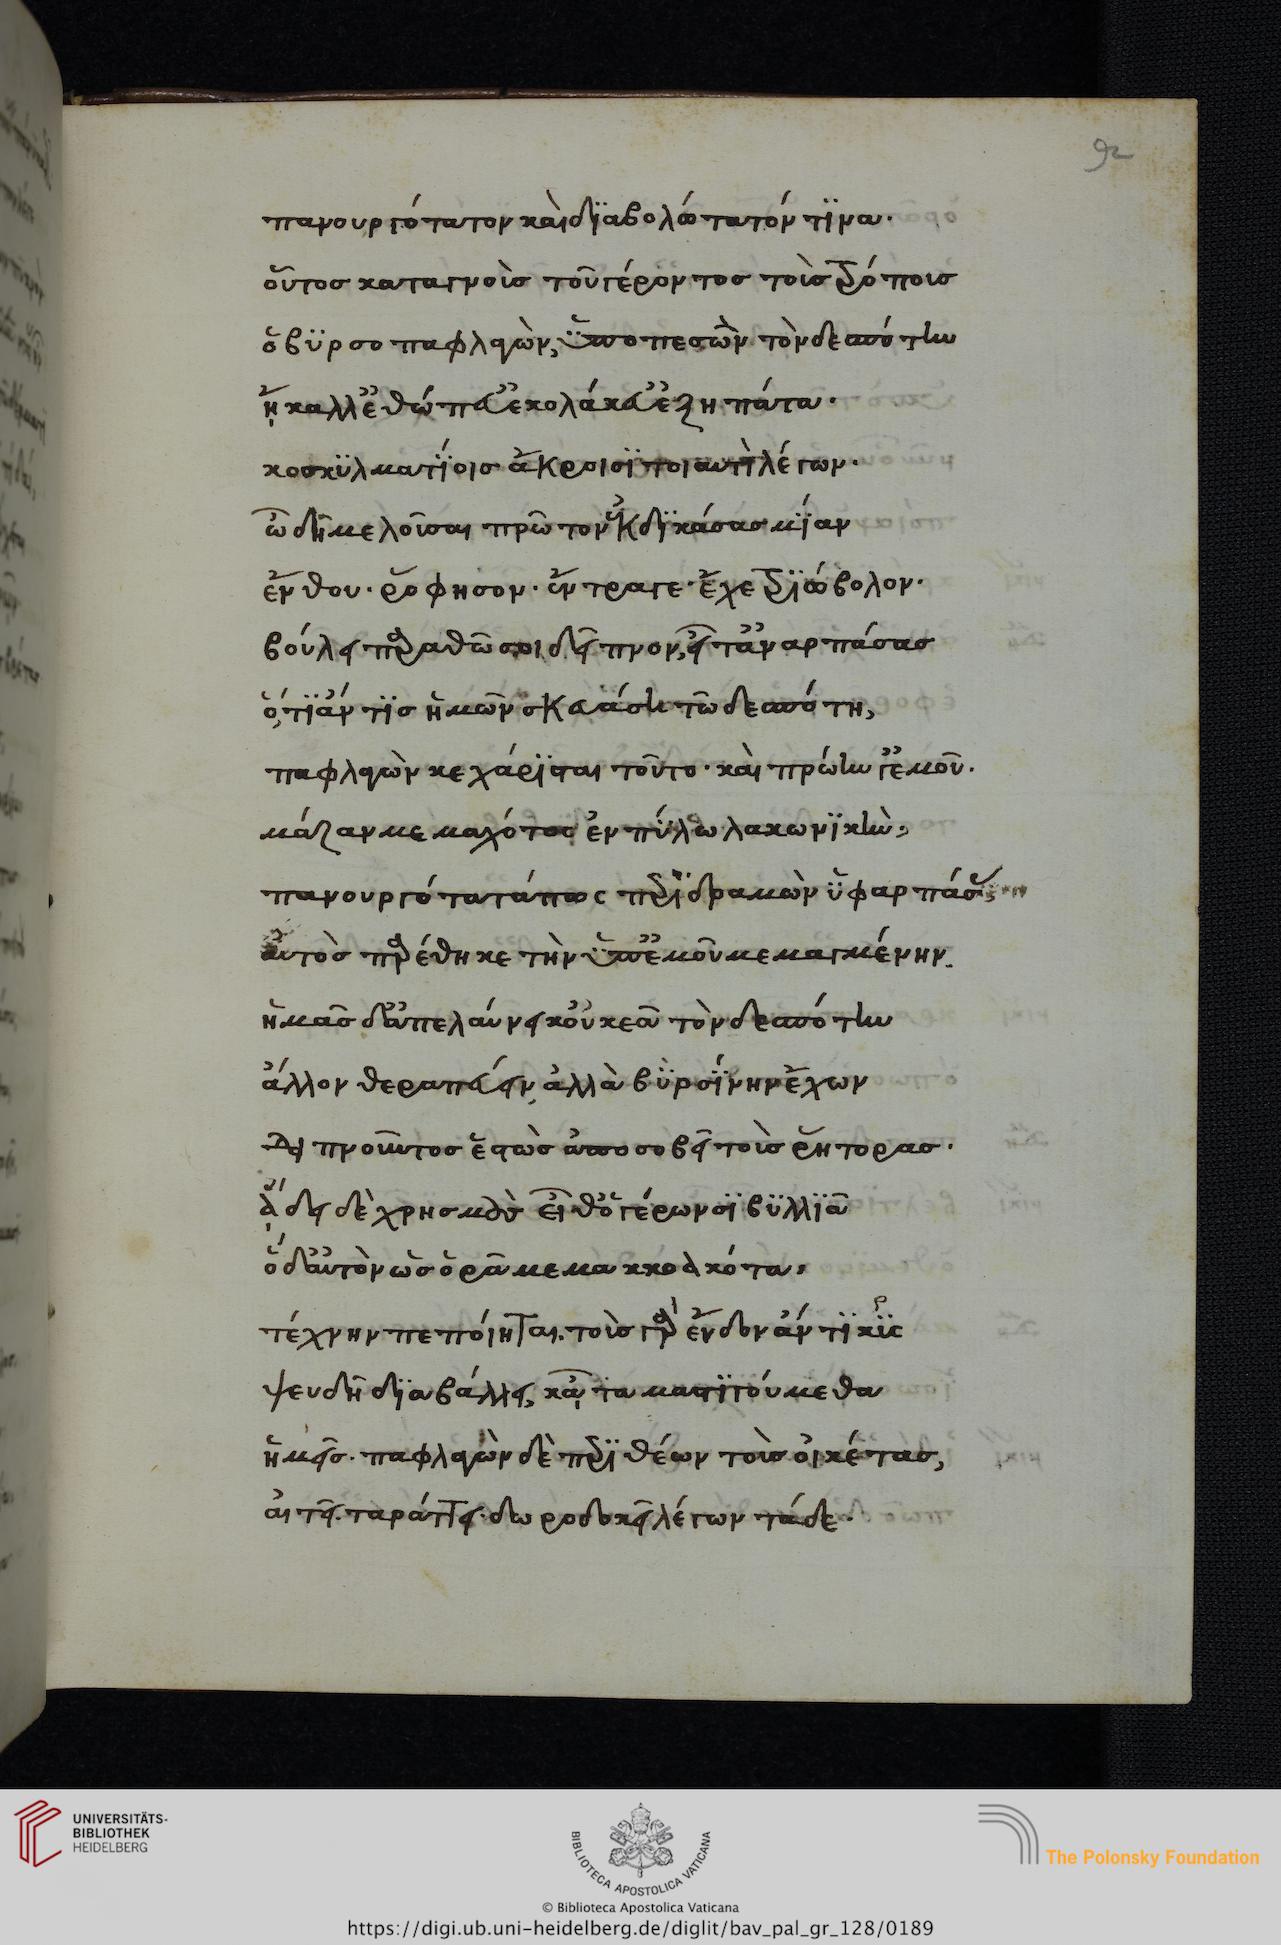 92
πανουργότατον καὶ διαβολώτατόν τινα.
οὗτος καταγνοὺς τοῦ γέροντος τοὺς τρόπους
ὁ βυρσοπαφλαγὼν, ὑποπεσὼν τὸν δεσπότην
ἤκαλλ' ἐθώπευ' ἐκολάκευ' ἐξηπάτα.
κοσκυλματίοις ἄκροισι τοιαυτὶ λέγων.
ὦ δῆμε λοῦσαι πρῶτον ἐκδικάσας μίαν
ἐνθοῦ. ῥόφησον. ἔντραγε. ἔχε τριώβολον.
βούλει παραθῶ σοι δεῖπνον, εἶτ' ἀναρπάσας
ὅ,τι ἄν τις ἡμῶν σκευάσῃ τῶ δεσπότη,
παφλαγὼν κεχάρισται τοῦτο. καὶ πρώην γ' ἐμοῦ.
μάζαν μεμαχότος ἐν πύλω λακωνικὴν,
πανουργότατά πως περιδραμὼν ὑφαρπάσας
αὐτὸς παρέθηκε τὴν ὑπ' ἐμοῦ μεμαγμένην.
ἡμᾶς δ' ἀπελαύνει κοὐκ ἐᾶ τὸν δεσπότην
ἄλλον θεραπεύειν, ἀλλὰ βυρσίνην ἔχων
δειπνοῦντος ἑστὼς ἀποσοβεῖ τοὺς ῥήτορας.
ᾄδει δὲ χρησμοὺς εἶθ' ὁ γέρων σιβυλλιᾶ
ὁ δ' αὐτὸν ὡς ὁρᾶ μεμακκοακότα,
τέχνην πεπόηται. τοὺς γὰρ ἔνδον ἄντικρυς
ψευδῆ διαβάλλει, κᾆτα μαστιγούμεθα
ἡμεῖς. παφλαγὼν δὲ περιθέων τοὺς οἰκέτας,
αἰτεῖ. ταράττει. δωροδοκεῖ λέγων τάδε.
UNIVERSITÄTS-
BIBLIOTHEK
HEIDELBERG
BIBLIOTECA APOSTOLICA VATICANA
The Polonsky Foundation
© Biblioteca Apostolica Vaticana
https://digi.ub.uni-heidelberg.de/diglit/bav_pal_gr_128/0189